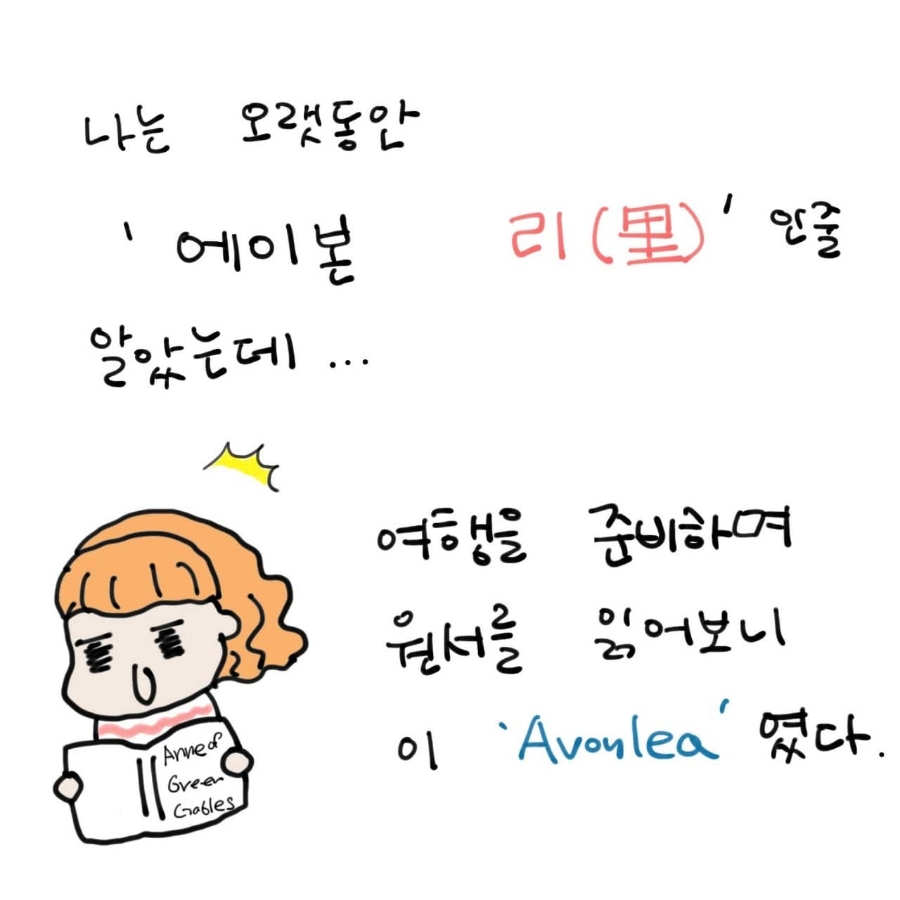 나는 오랫동안
'에이본 리(里)' 인줄
알았는데...
여행을 준비하며
원서를 읽어보니
이 'Avonlea' 였다.
Anne of
Green
Gables